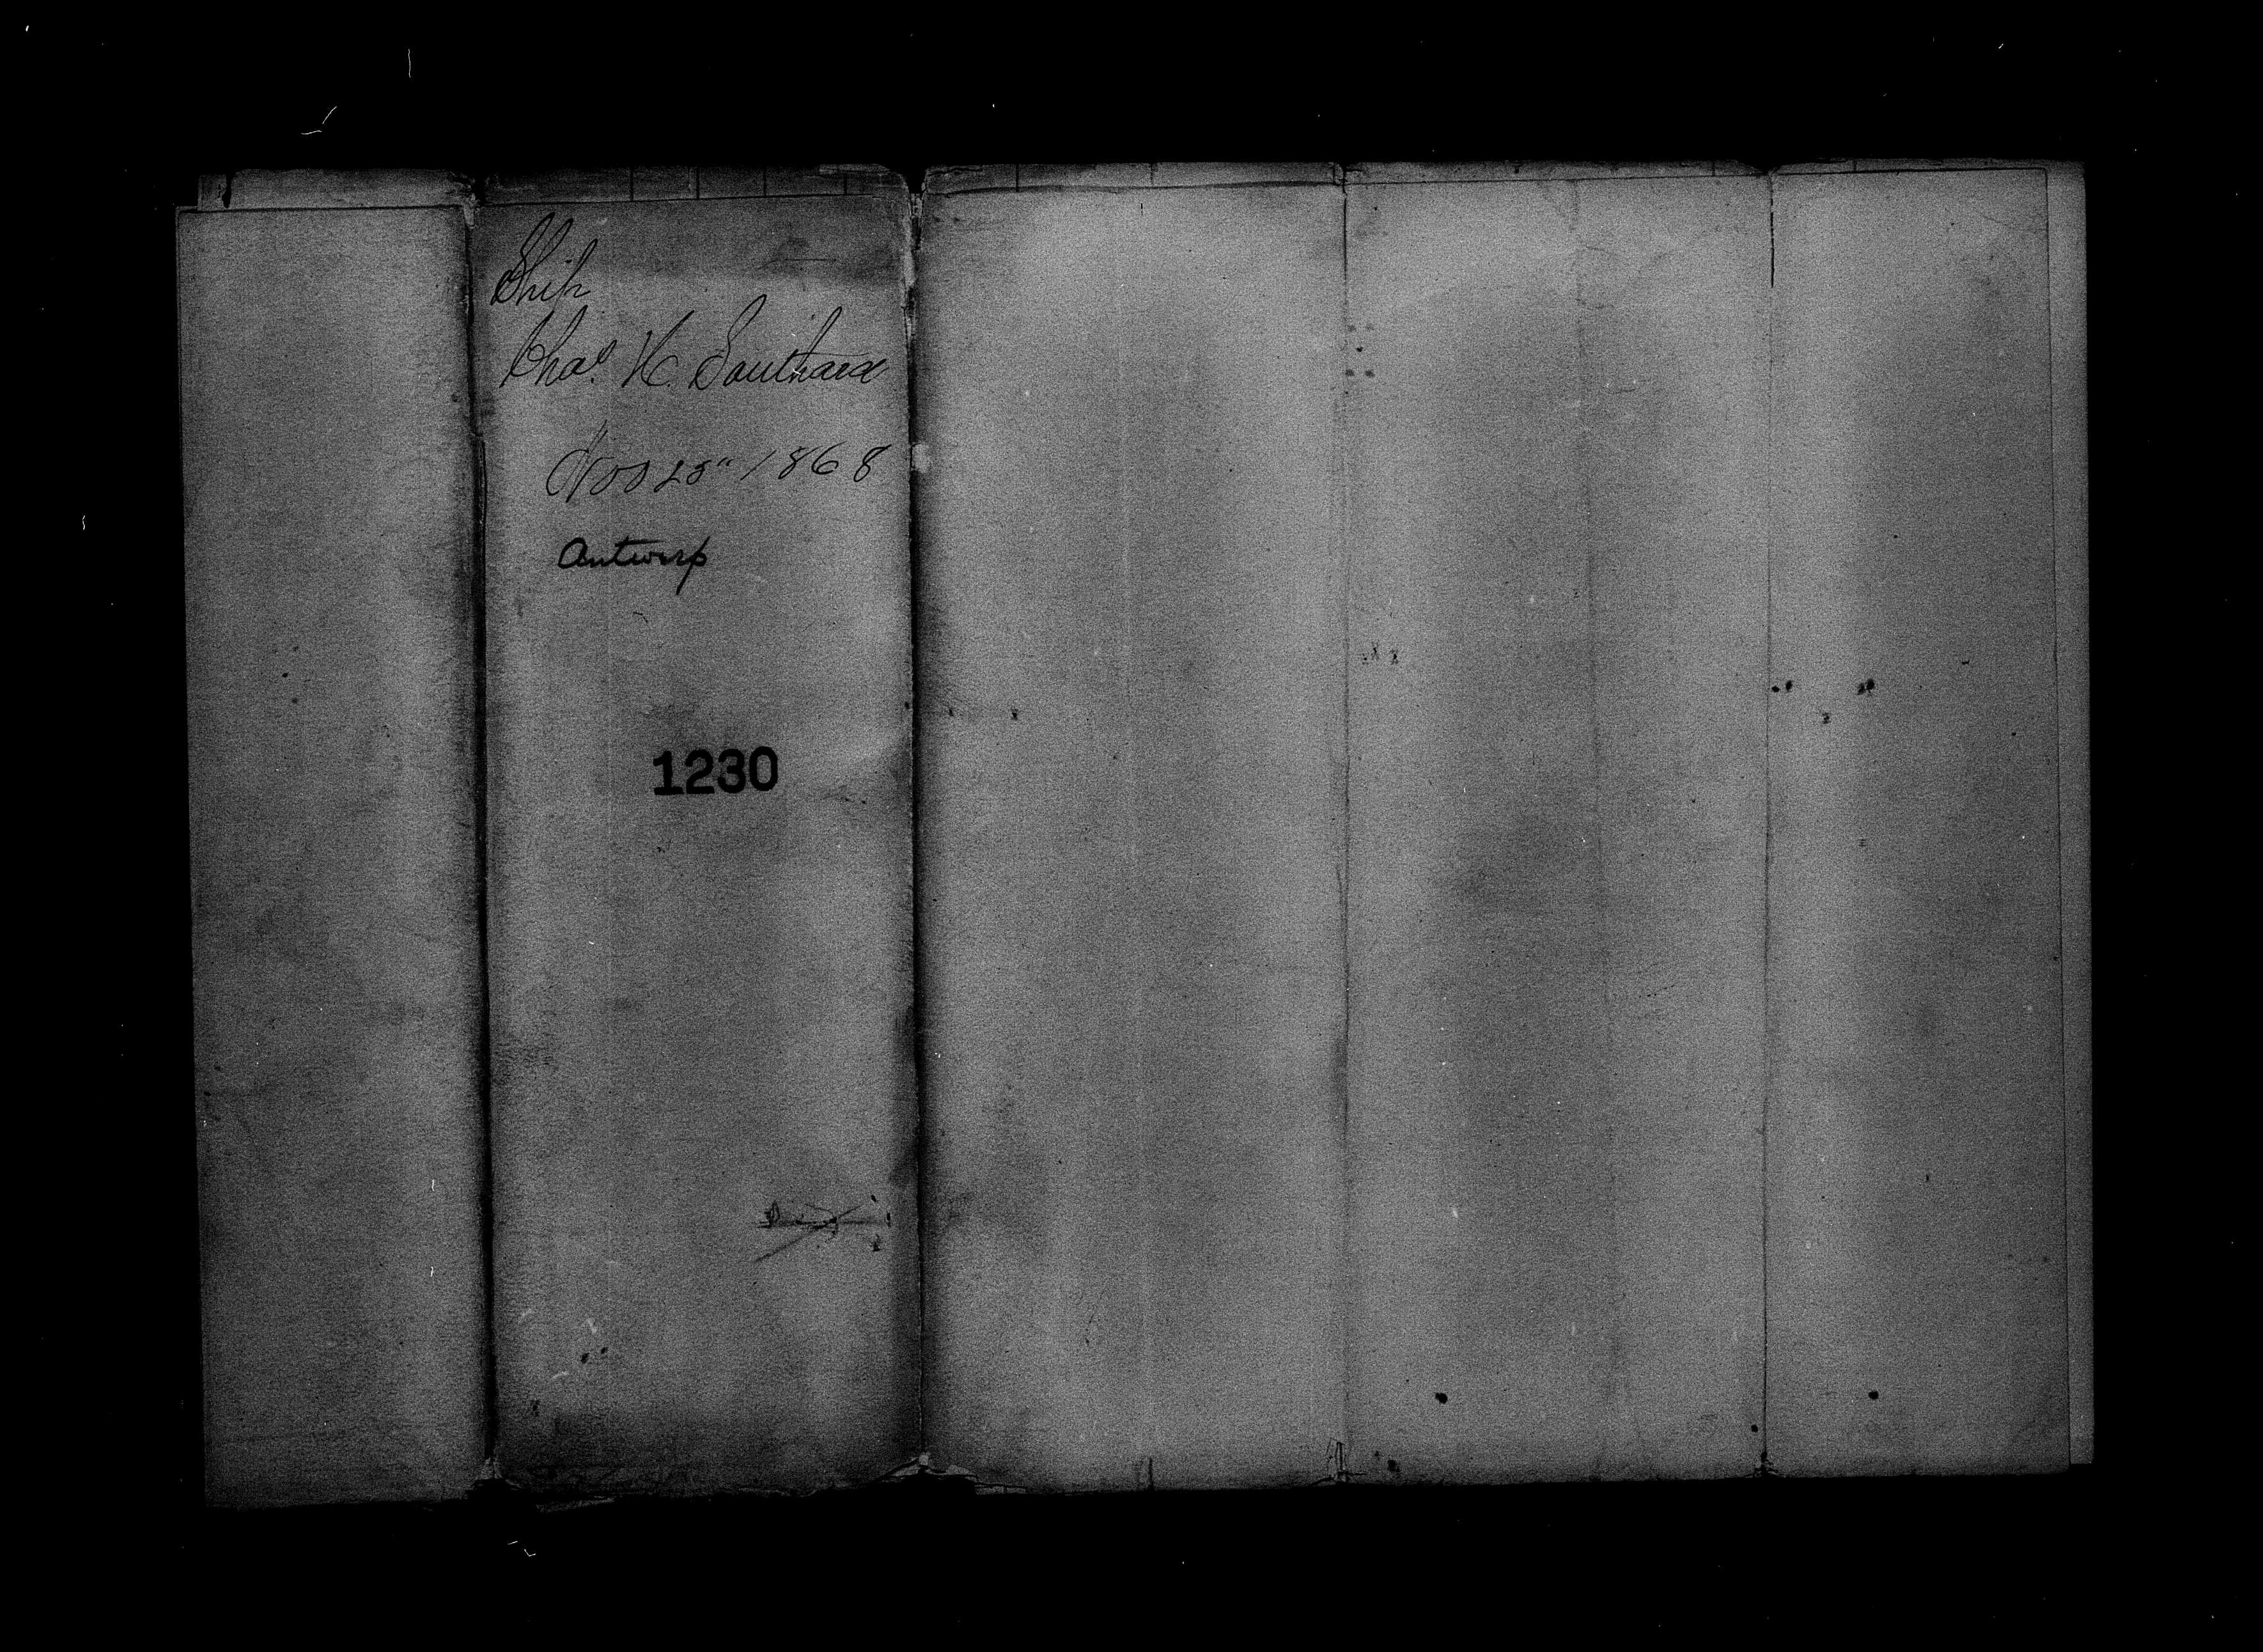 Ship
Chas. H. Southard
Nov 23" 1868
Antwerp
1230